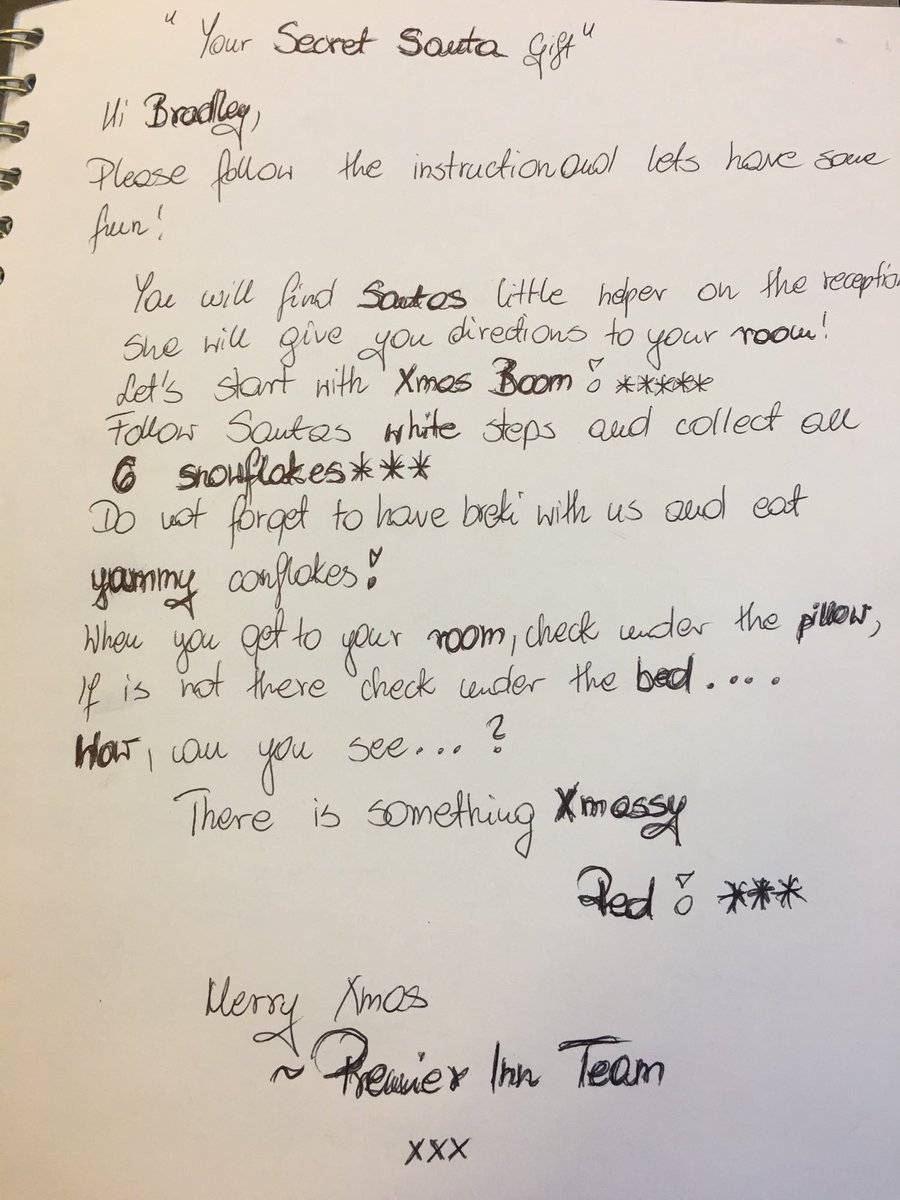 "Your Secret Santa Gift"
Hi Bradley,
Please follow the instruction and lets have some
fun!
You will find Santas little helper on the reception
she will give you directions to your room!
Let's start with Xmas Boom! *****
Follow Santas white steps and collect all
6 snowflakes***
Do not forget to have breki with us and eat
yammy conflakes!
When you get to your room, check under the pillow,
If is not there check under the bed.....
Wow, can you see...?
There is something Xmassy
Red! ***
Merry Xmas
~ Premier Inn Team
xxx